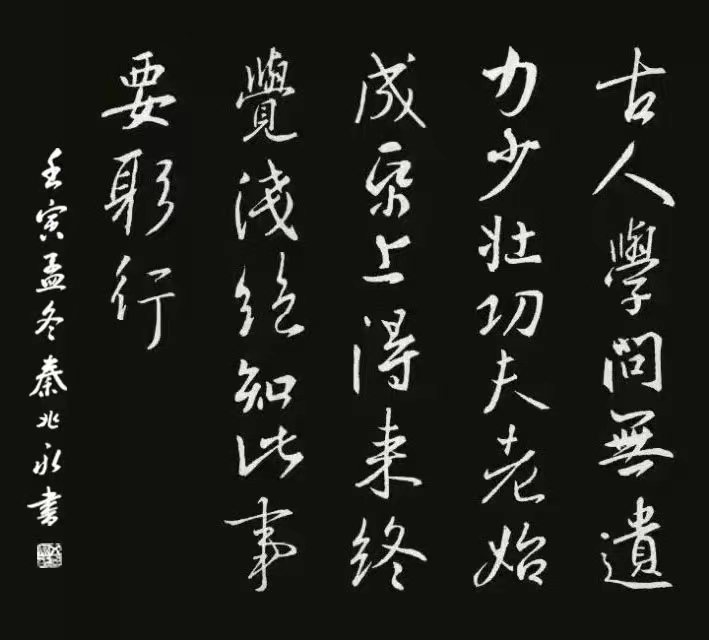 古人學問無遺
力少壯功夫老始
成帋上得来終
覺淺絕知此事
要躬行
壬寅孟冬秦兆永書